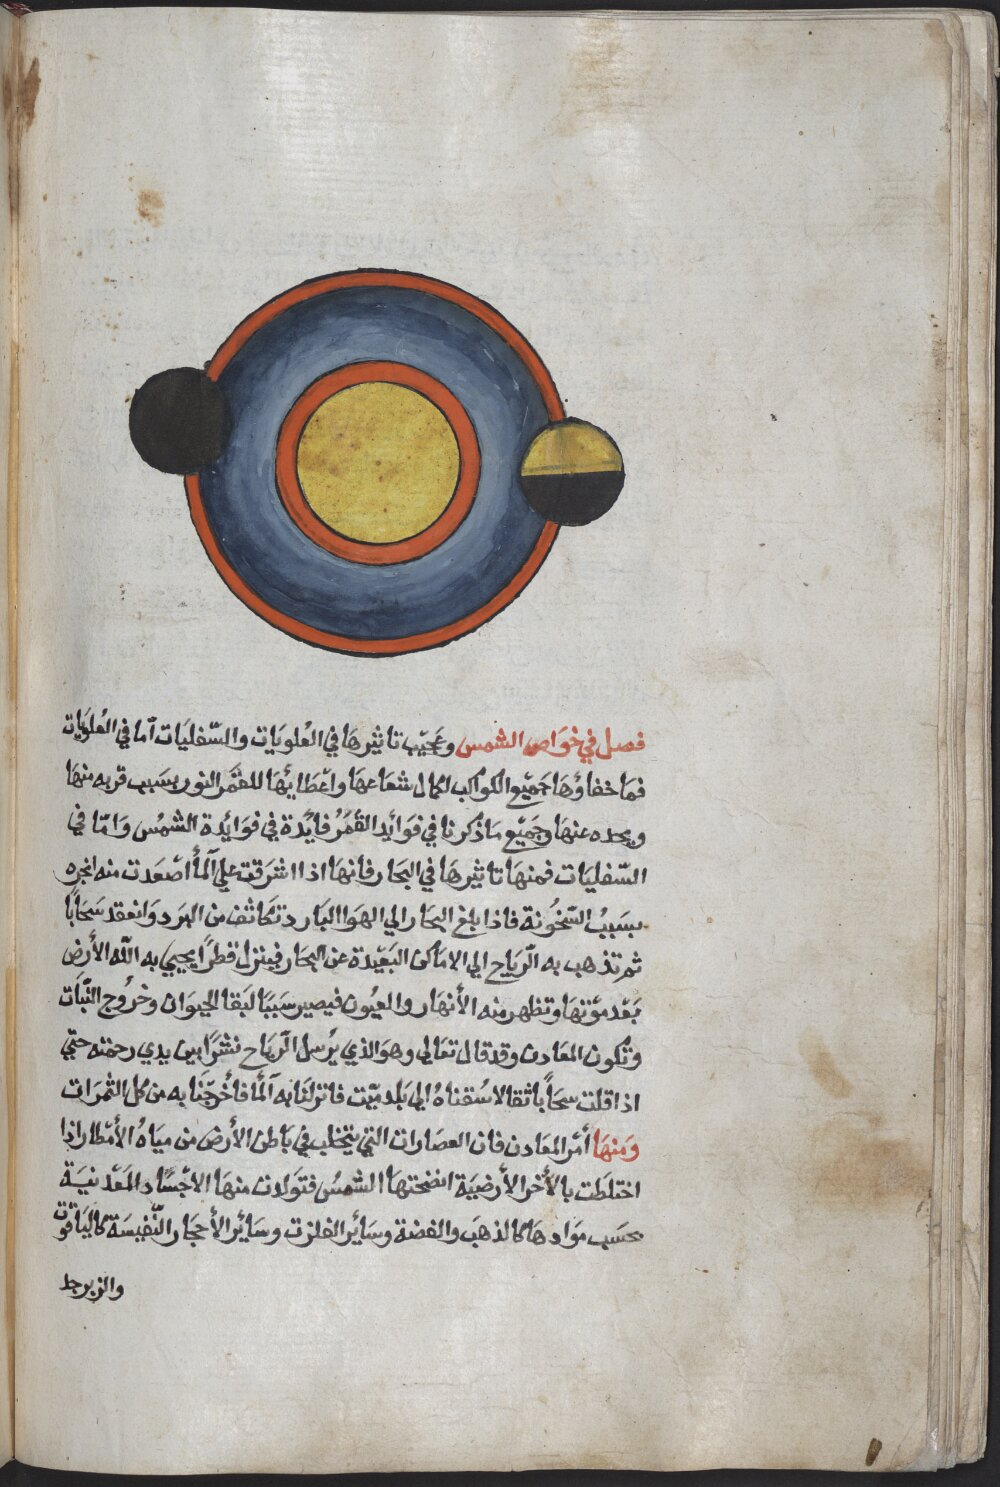 فصل في خوَاص الشمس وعَجيَب تاثيرهَا في العُلويَات والسّفليَات آما في العُلويَات
فمَا خفاؤهَا جَميْع الكوَاكب لكمال شعَاعهَا واعْطايْهَا للقمَر النور بسَبب قربه منهَا
وبعده عنهَا وجَميْع مَا ذكرنا في فوَايْد القمَرُ فايْدة في فوَايْدة الشمسُ وَامّا في
السّفليَات فمنهَا تاثيرهَا في البحَار فانهَا اذا اشرَقت علي آلمأ اصْعَدت منه ابخره
بسَببُ السّخوُنة فاذا بلغ البحَار الي الهوَا البَارد تكاثف من البرَد وَانعقد سَحَاباً
ثم تذهب به الّريَاح الي الامَاكن البَعيْدة عن البحَار فينزل قطراً يحيي به اللّٰه الأرض
بَعْد موْتهَا وتظهر منه الأنهَار والعيُون فيصير سَببَا لبَقا الحيوَان وخروُج النّبَات
وتكون المعَادن وقد قال تعَالي وهوَ الذي يرُسل الّريَاح نشرَاً بين يدي رحمَته حتي
اذا اقلت سحَاباً ثقالا سُقناهُ الي بَلد ميّت فانزلنَا به آلمأ فأخرجْنَا به من كل الثمرَات
وَمنهَا أمْر المعَادن فان العصَارات التي يتحلب في بَاطن الأرض من ميَاهُ الأمْطار اذا
اختلطت بالأخر الأرضيَة انضجتهَا الشمسُ فتوَلدت منهَا الاجْسَاد المعَدْنيَة
بحسَب موَادهَا كالذهبَ والفضة وسَايْر الفلزت وسَايْر الأحجَار النّفيسَة كاليَاقوت
والزبرجد